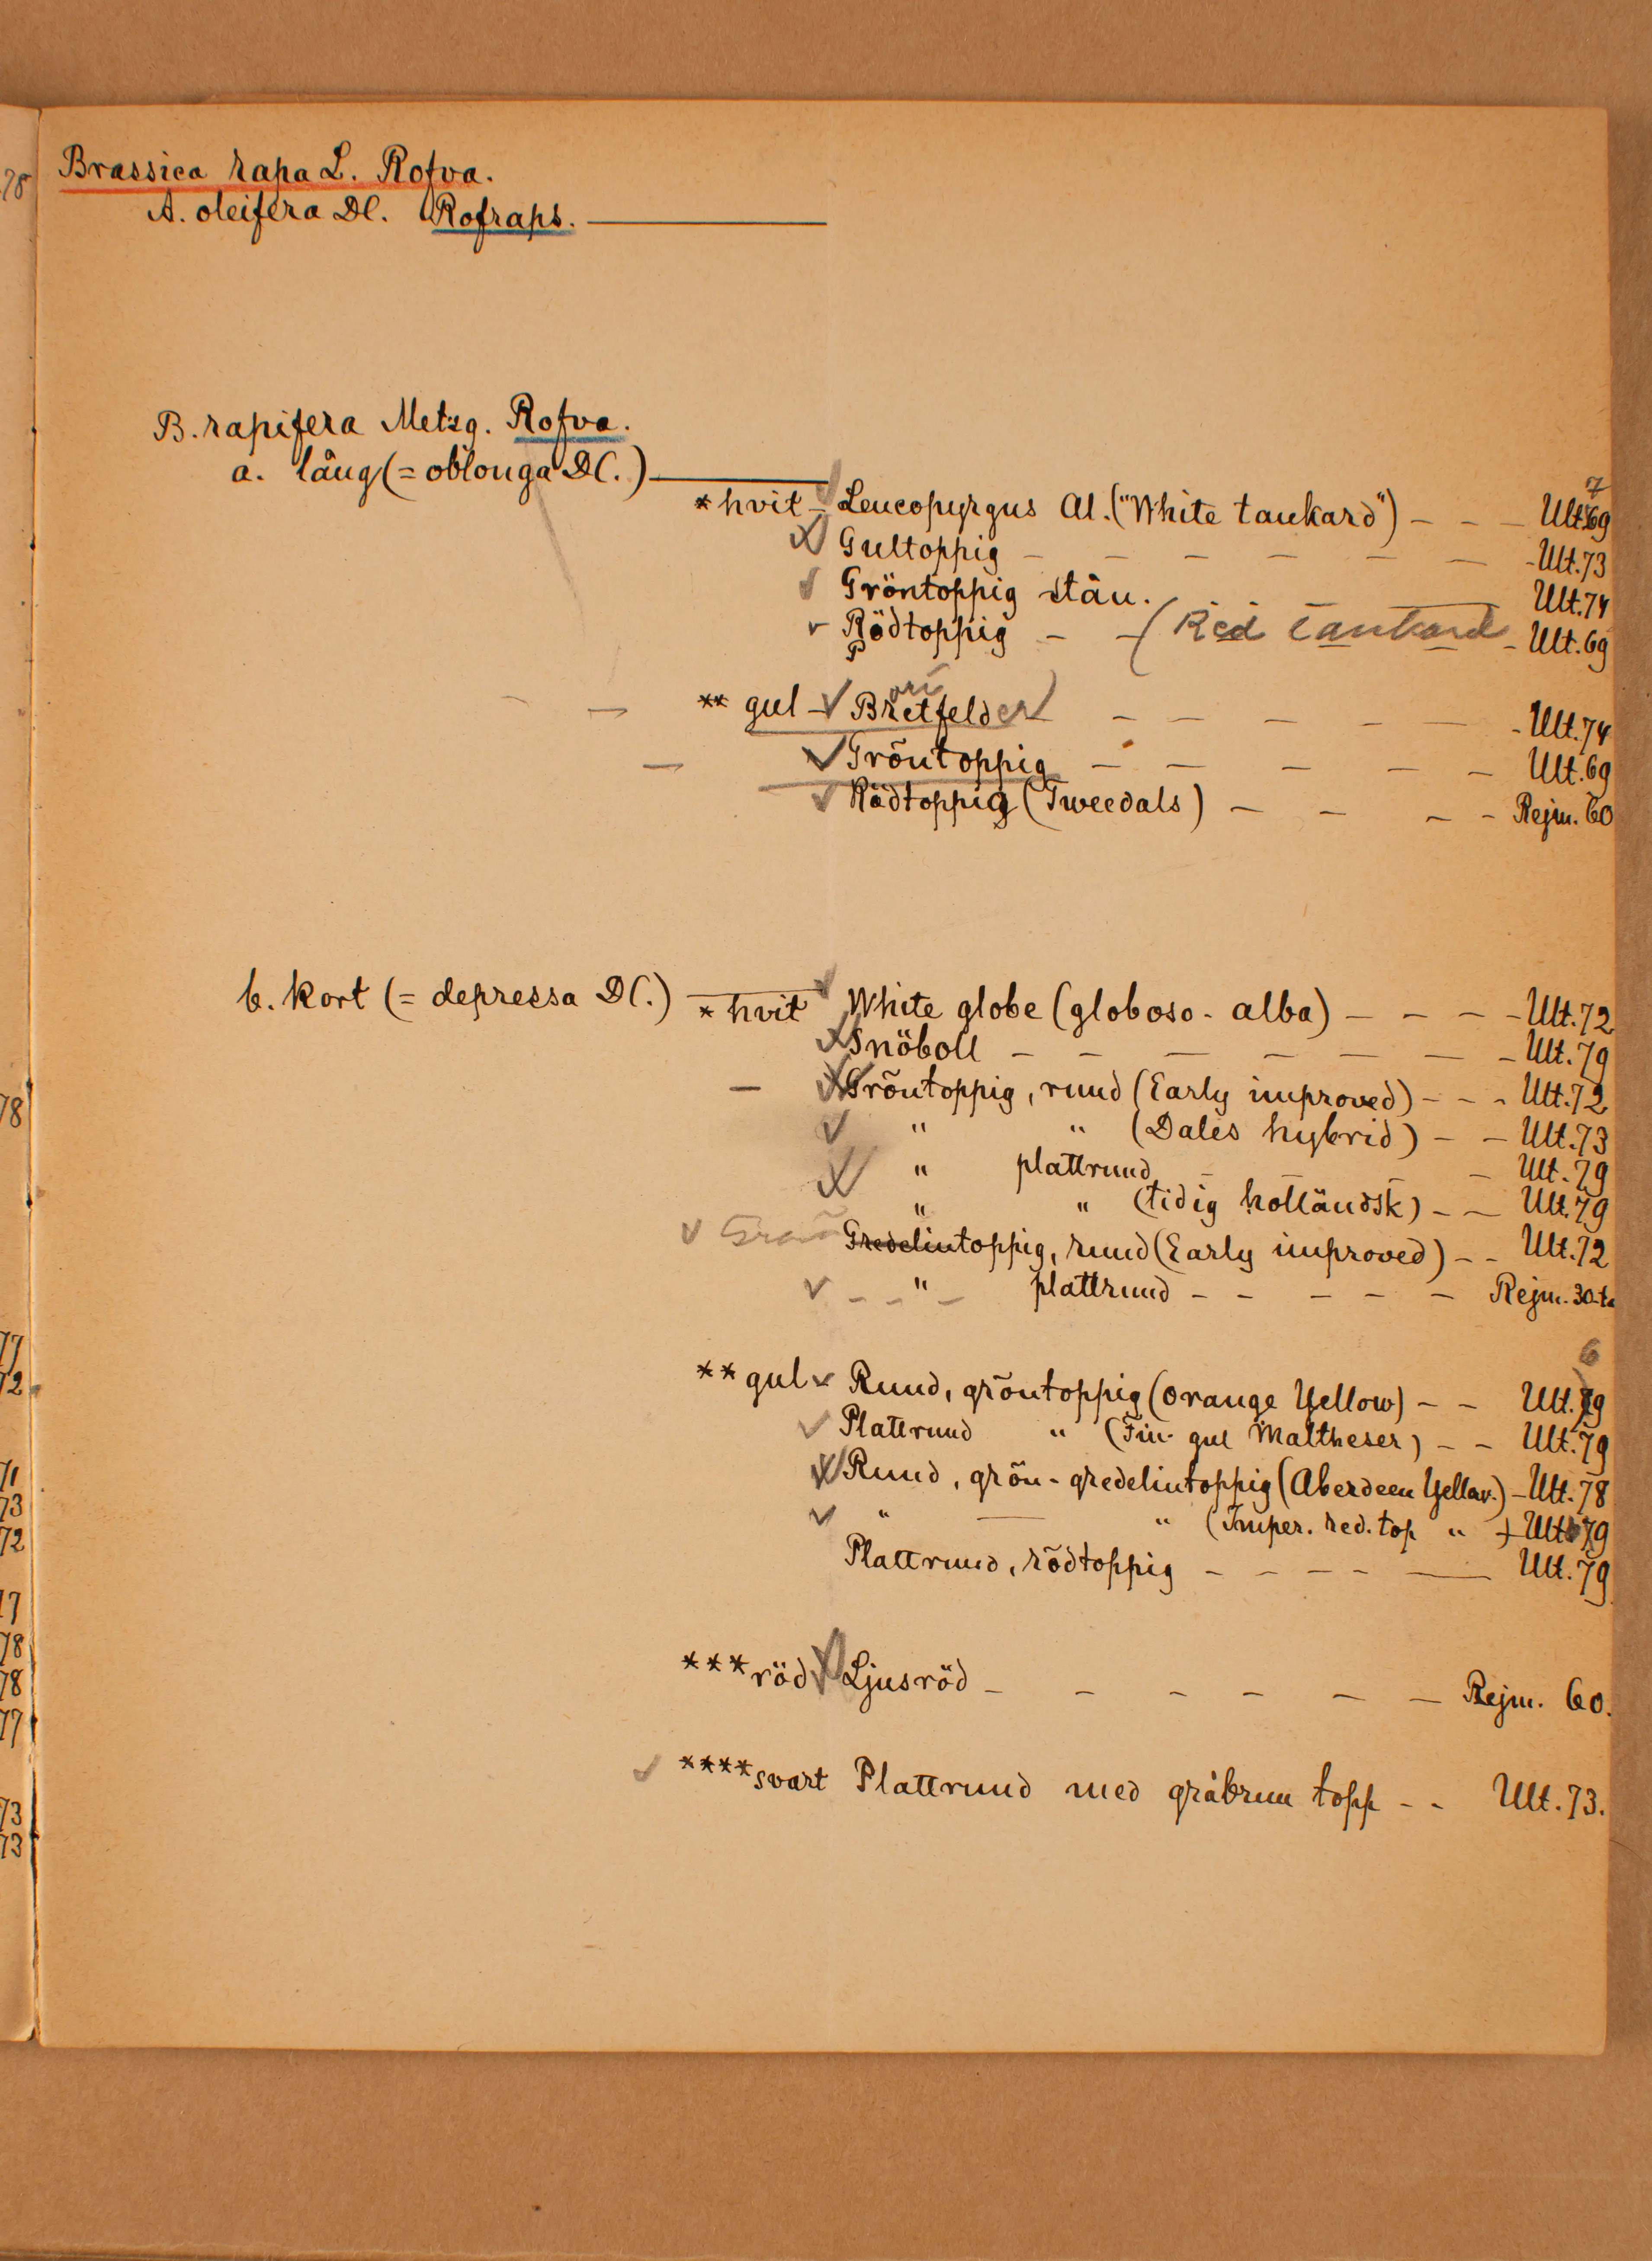 78
Brassica rapa L. Rofva.
A. oleifera DC. Rofraps.
B. rapifera Metzg. Rofva.
a. lång (= oblonga DC.)
* hvit - Leucopyrgus Al. ("White tankard") - - - Ult. 69 7
Gultoppig - - - - - - - Ult. 73
Gröntoppig stån. Ult. 74
Rödtoppig - - (Red Tankard - Ult. 69
** gul - Bretfelder - - - - - - Ult. 74
Gröntoppig - - - - - Ult. 69
Rödtoppig (Tweedals) - - - - Rejm. 60
b. kort (= depressa DC.)
* hvit White globe (globoso-alba) - - - - Ult. 72
Snöboll - - - - - - - Ult. 79
Gröntoppig, rund (Early improved) - - - Ult. 72
" " (Dales hybrid) - - Ult. 73
" plattrund - - - Ult. 79
" " (tidig holländsk) - - Ult. 79
Grön Gredelintoppig, rund (Early improved) - - Ult. 72
- - " - plattrund - - - - - Rejm. 30-t.
** gul Rund, gröntoppig (Orange Yellow) - - Ult. 79 6
Plattrund " (Fin. gul Maltheser) - - Ult. 79
Rund, grön-gredelintoppig (Aberdeen Yellow.) - Ult. 78
" — " (Imper. red. top " ) - Ult. 79
Plattrund, rödtoppig - - - - — Ult. 79
*** röd Ljusröd - - - - - - Rejm. 60.
**** svart Plattrund med gråbrun topp - - Ult. 73.
78
77
72
71
73
72
17
78
78
77
73
73